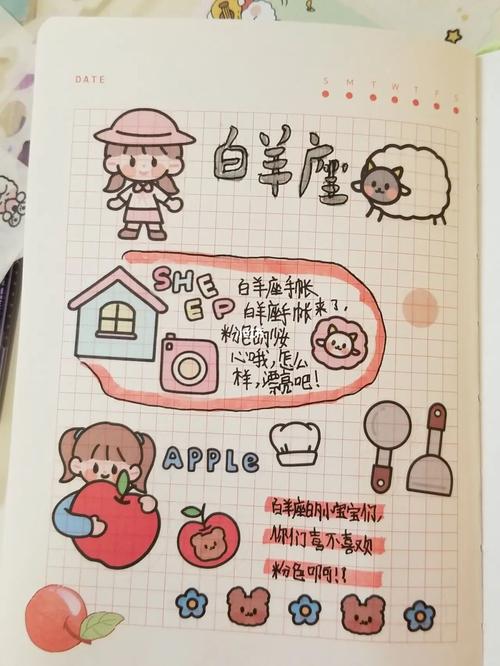 DATE
S M T W T F S
白羊座
SHEEP
白羊座手帐
白羊座手帐来了,
粉色的少女
心哦,怎么
样,漂亮吧!
APPLe
白羊座的小宝宝们,
你们喜不喜欢
粉色呀!!